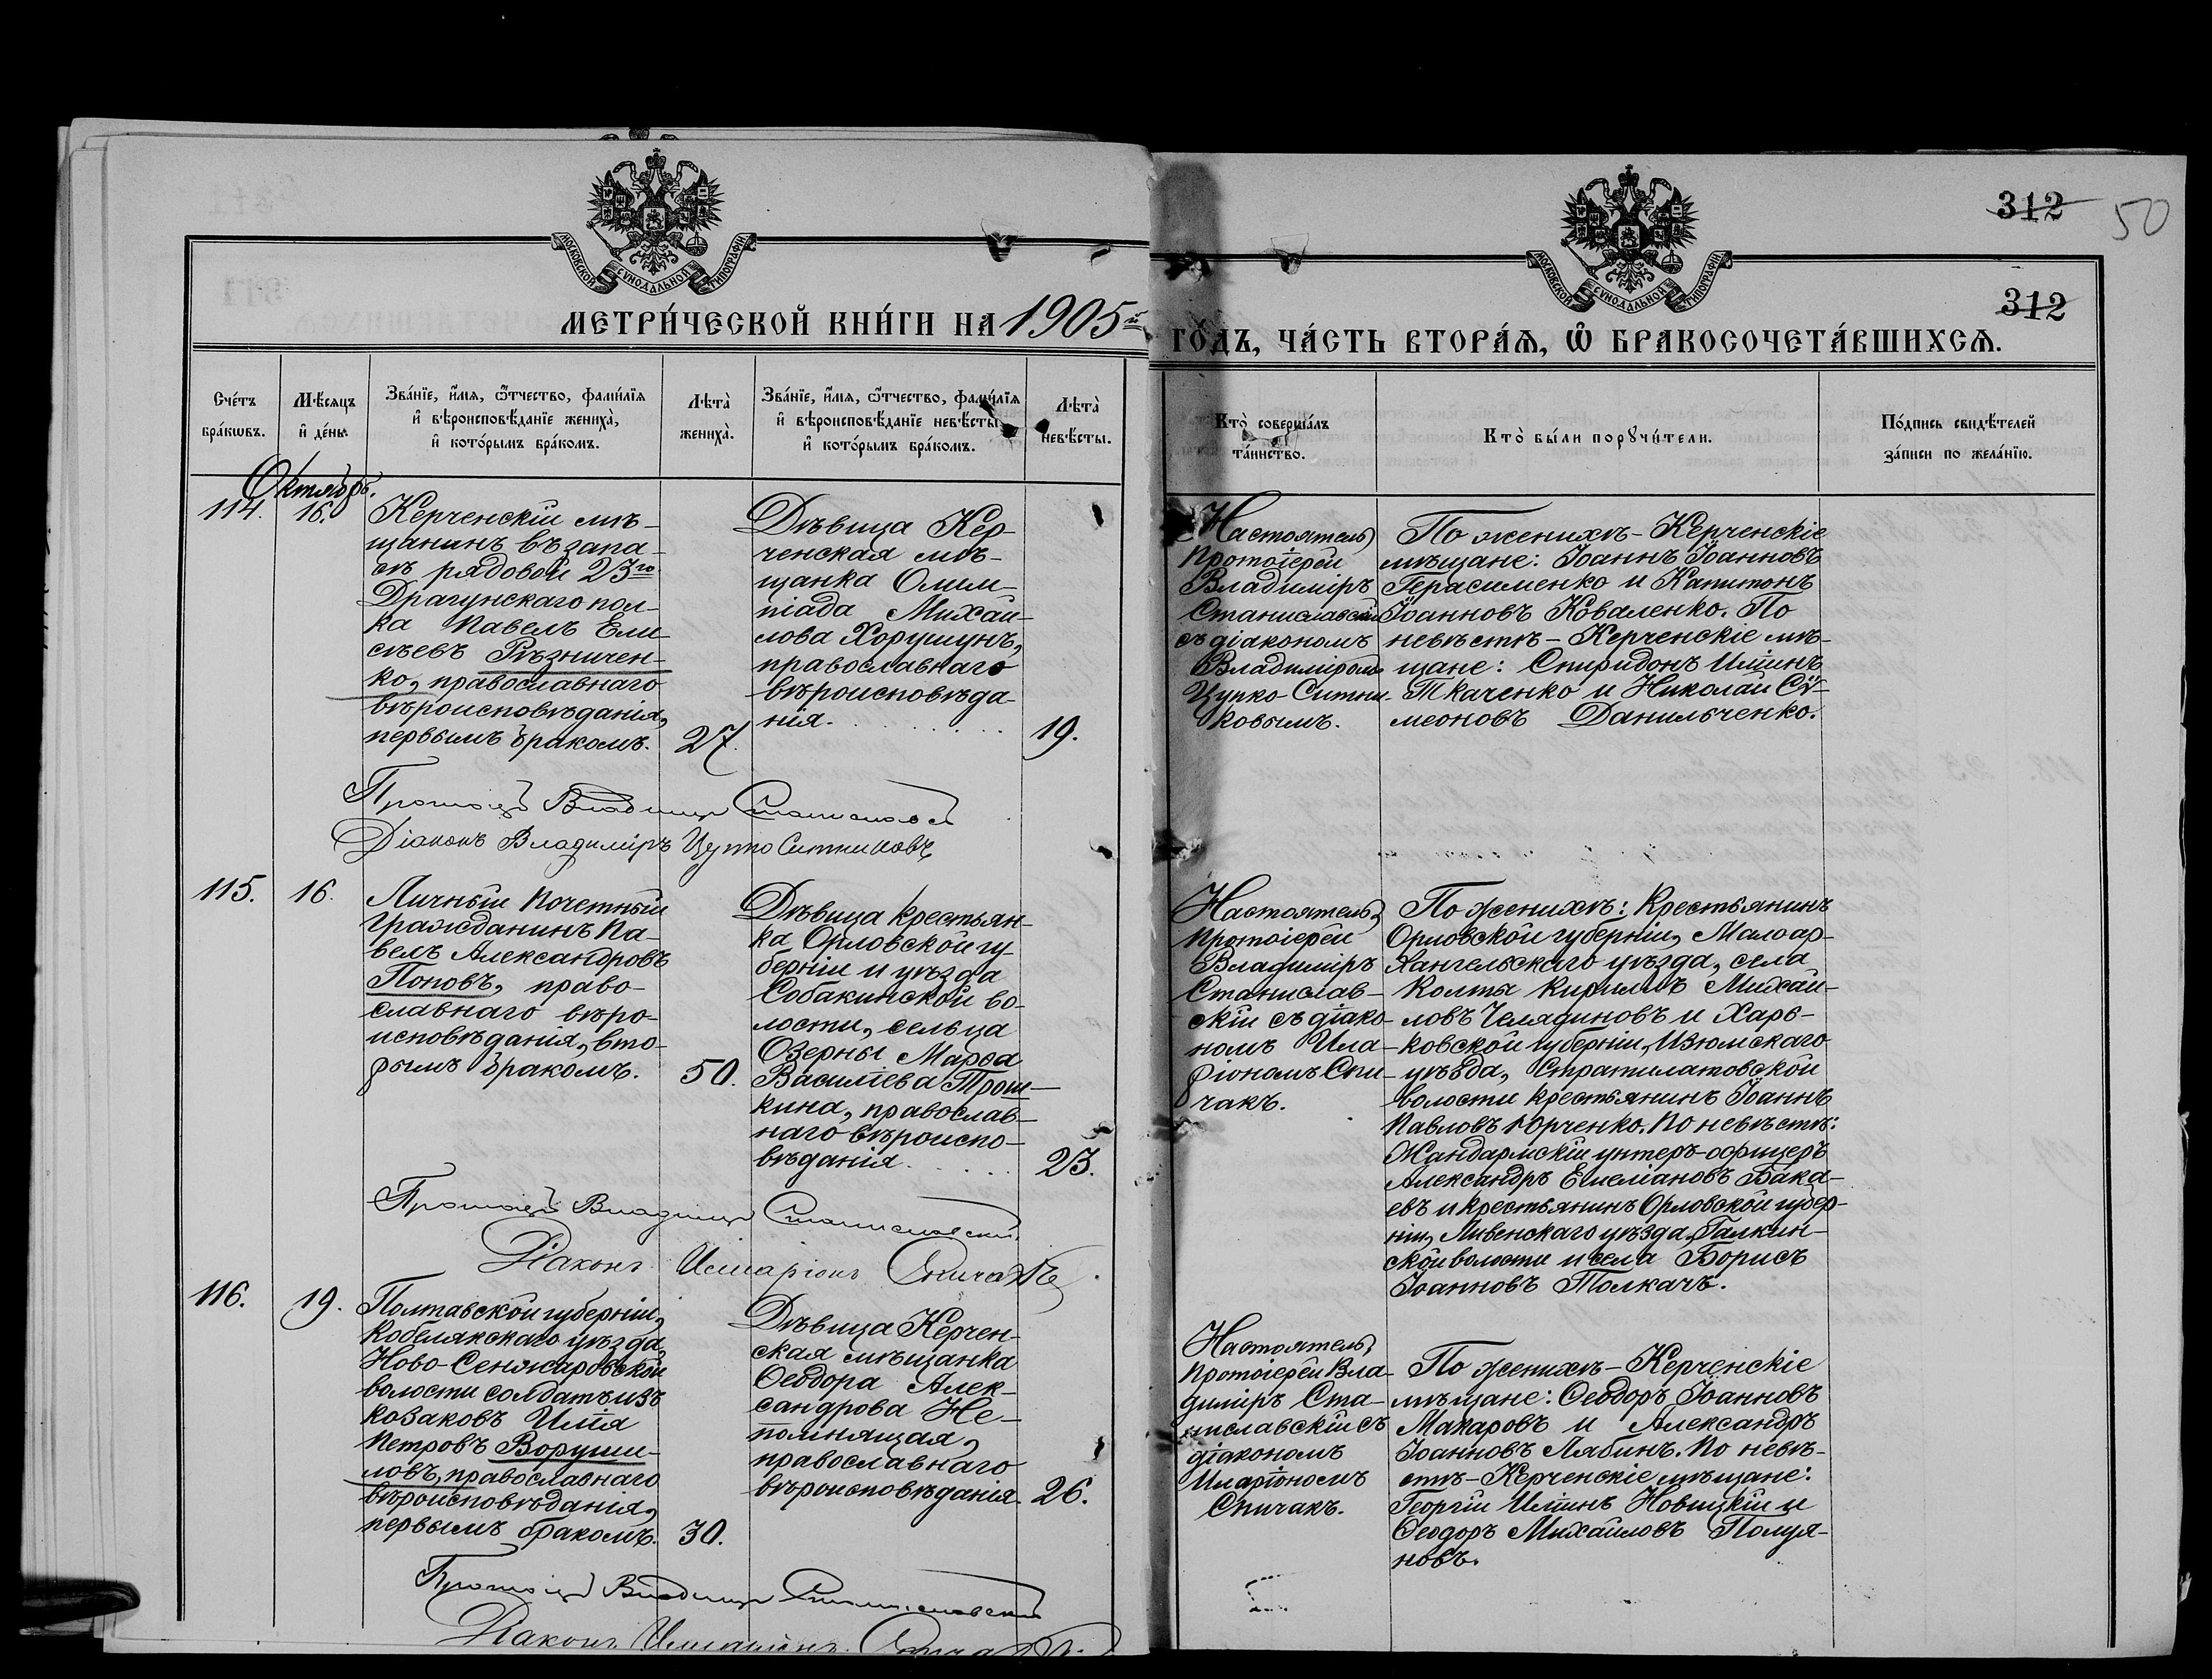 312
50
МОСКОВСКОЙ СУНОДАЛЬНОЙ ТИПОГРАФІИ
МОСКОВСКОЙ СУНОДАЛЬНОЙ ТИПОГРАФІИ
312
МЕТРИ́ЧЕСКОЙ КНИ́ГИ НА 1905й
ГО́ДЪ, ЧА́СТЬ ВТОРА́Ѧ, Ѽ БРАКОСОЧЕТА́ВШИХСѦ.
Сче́тъ
бра́кѡвъ.
Мѣ́сяцъ
и҆ де́нь.
Зва́нїе, и҆́мѧ, ѻ҆́тчество, фами́лїѧ
и҆ вѣроисповѣ́данїе жениха̀,
и҆ кото́рымъ бра́комъ.
Лѣта̀
жениха̀.
Зва́нїе, и҆́мѧ, ѻ҆́тчество, фами́лїѧ
и҆ вѣроисповѣ́данїе невѣ́сты
и҆ кото́рымъ бра́комъ.
Лѣта̀
невѣ́сты.
Кто̀ соверша́лъ
та́инство.
Кто̀ бы́ли порꙋчи́тели.
По́дпись свидѣ́телей
за́писи по жела́нїю.
Октябрь.
114.
16.
Керченскій мѣ-
щанинъ въ запа-
сѣ рядовой 23го
Драгунскаго пол-
ка Павелъ Ели-
сѣевъ Рѣзничен-
ко, православнаго
вѣроисповѣданія,
первымъ бракомъ.
27.
Дѣвица Кер-
ченская мѣ-
щанка Олим-
піада Михаи-
лова Хорушунъ,
православнаго
вѣроисповѣда-
нія.
19.
Настоятель
Протоіерей
Владиміръ
Станиславскій
съ діакономъ
Владиміромъ
Цупко-Ситни-
ковымъ.
По женихѣ - Керченскіе
мѣщане: Іоаннъ Іоанновъ
Герасименко и Капитонъ
Іоанновъ Коваленко. По
невѣстѣ - Керченскіе мѣ-
щане: Спиридонъ Иліинъ
Ткаченко и Николай Сѵ-
меоновъ Данильченко.
Протоіерей Владиміръ Станиславскій
Діаконъ Владиміръ Цупко Ситниковъ
115.
16.
Личный Почетный
Гражданинъ Па-
велъ Александровъ
Поповъ, право-
славнаго вѣро-
исповѣданія, вто-
рымъ бракомъ.
50.
Дѣвица крестьян-
ка Орловской гу-
берніи и уѣзда
Собакинской во-
лости, сельца
Озерны Марѳа
Василіева Трош-
кина, православ-
наго вѣроиспо-
вѣданія.
23.
Настоятель,
Протоіерей
Владиміръ
Станислав-
скій съ діако-
номъ Ила-
ріономъ Спи-
чакъ.
По женихѣ: Крестьянинъ
Орловской губерніи, Малоар-
хангельскаго уѣзда, села
Колпы Кириллъ Михаи-
ловъ Челядиновъ и Харь-
ковской губерніи, Изюмскаго
уѣзда, Стратилатовской
волости крестьянинъ Іоаннъ
Павловъ Юрченко. По невѣстѣ:
Жандармскій унтеръ-офицеръ
Александръ Емеліановъ Бака-
евъ и крестьянинъ Орловской губер-
ніи, Ливенскаго уѣзда, Галкин-
ской волости и села Борисъ
Іоанновъ Толкачъ.
Протоіерей Владиміръ Станиславскій
Діаконъ Иларіонъ Спичакъ.
116.
19.
Полтавской губерніи,
Кобелякскаго уѣзда,
Ново-Сенжаровской
волости солдатъ изъ
козаковъ Илія
Петровъ Воруши-
ловъ, православнаго
вѣроисповѣданія,
первымъ бракомъ.
30.
Дѣвица Керчен-
ская мѣщанка
Ѳеодора Алек-
сандрова Не-
помнящая,
православнаго
вѣроисповѣданія.
26.
Настоятель,
Протоіерей Вла-
диміръ Ста-
ниславскій съ
діакономъ
Иларіономъ
Спичакъ.
По женихѣ - Керченскіе
мѣщане: Ѳеодоръ Іоанновъ
Макаровъ и Александръ
Іоанновъ Лябинъ. По невѣ-
стѣ - Керченскіе мѣщане:
Георгій Иліинъ Новицкій и
Ѳеодоръ Михаиловъ Полуя-
новъ.
Протоіерей Владиміръ Станиславскій
Діаконъ Иларіонъ Спичакъ.